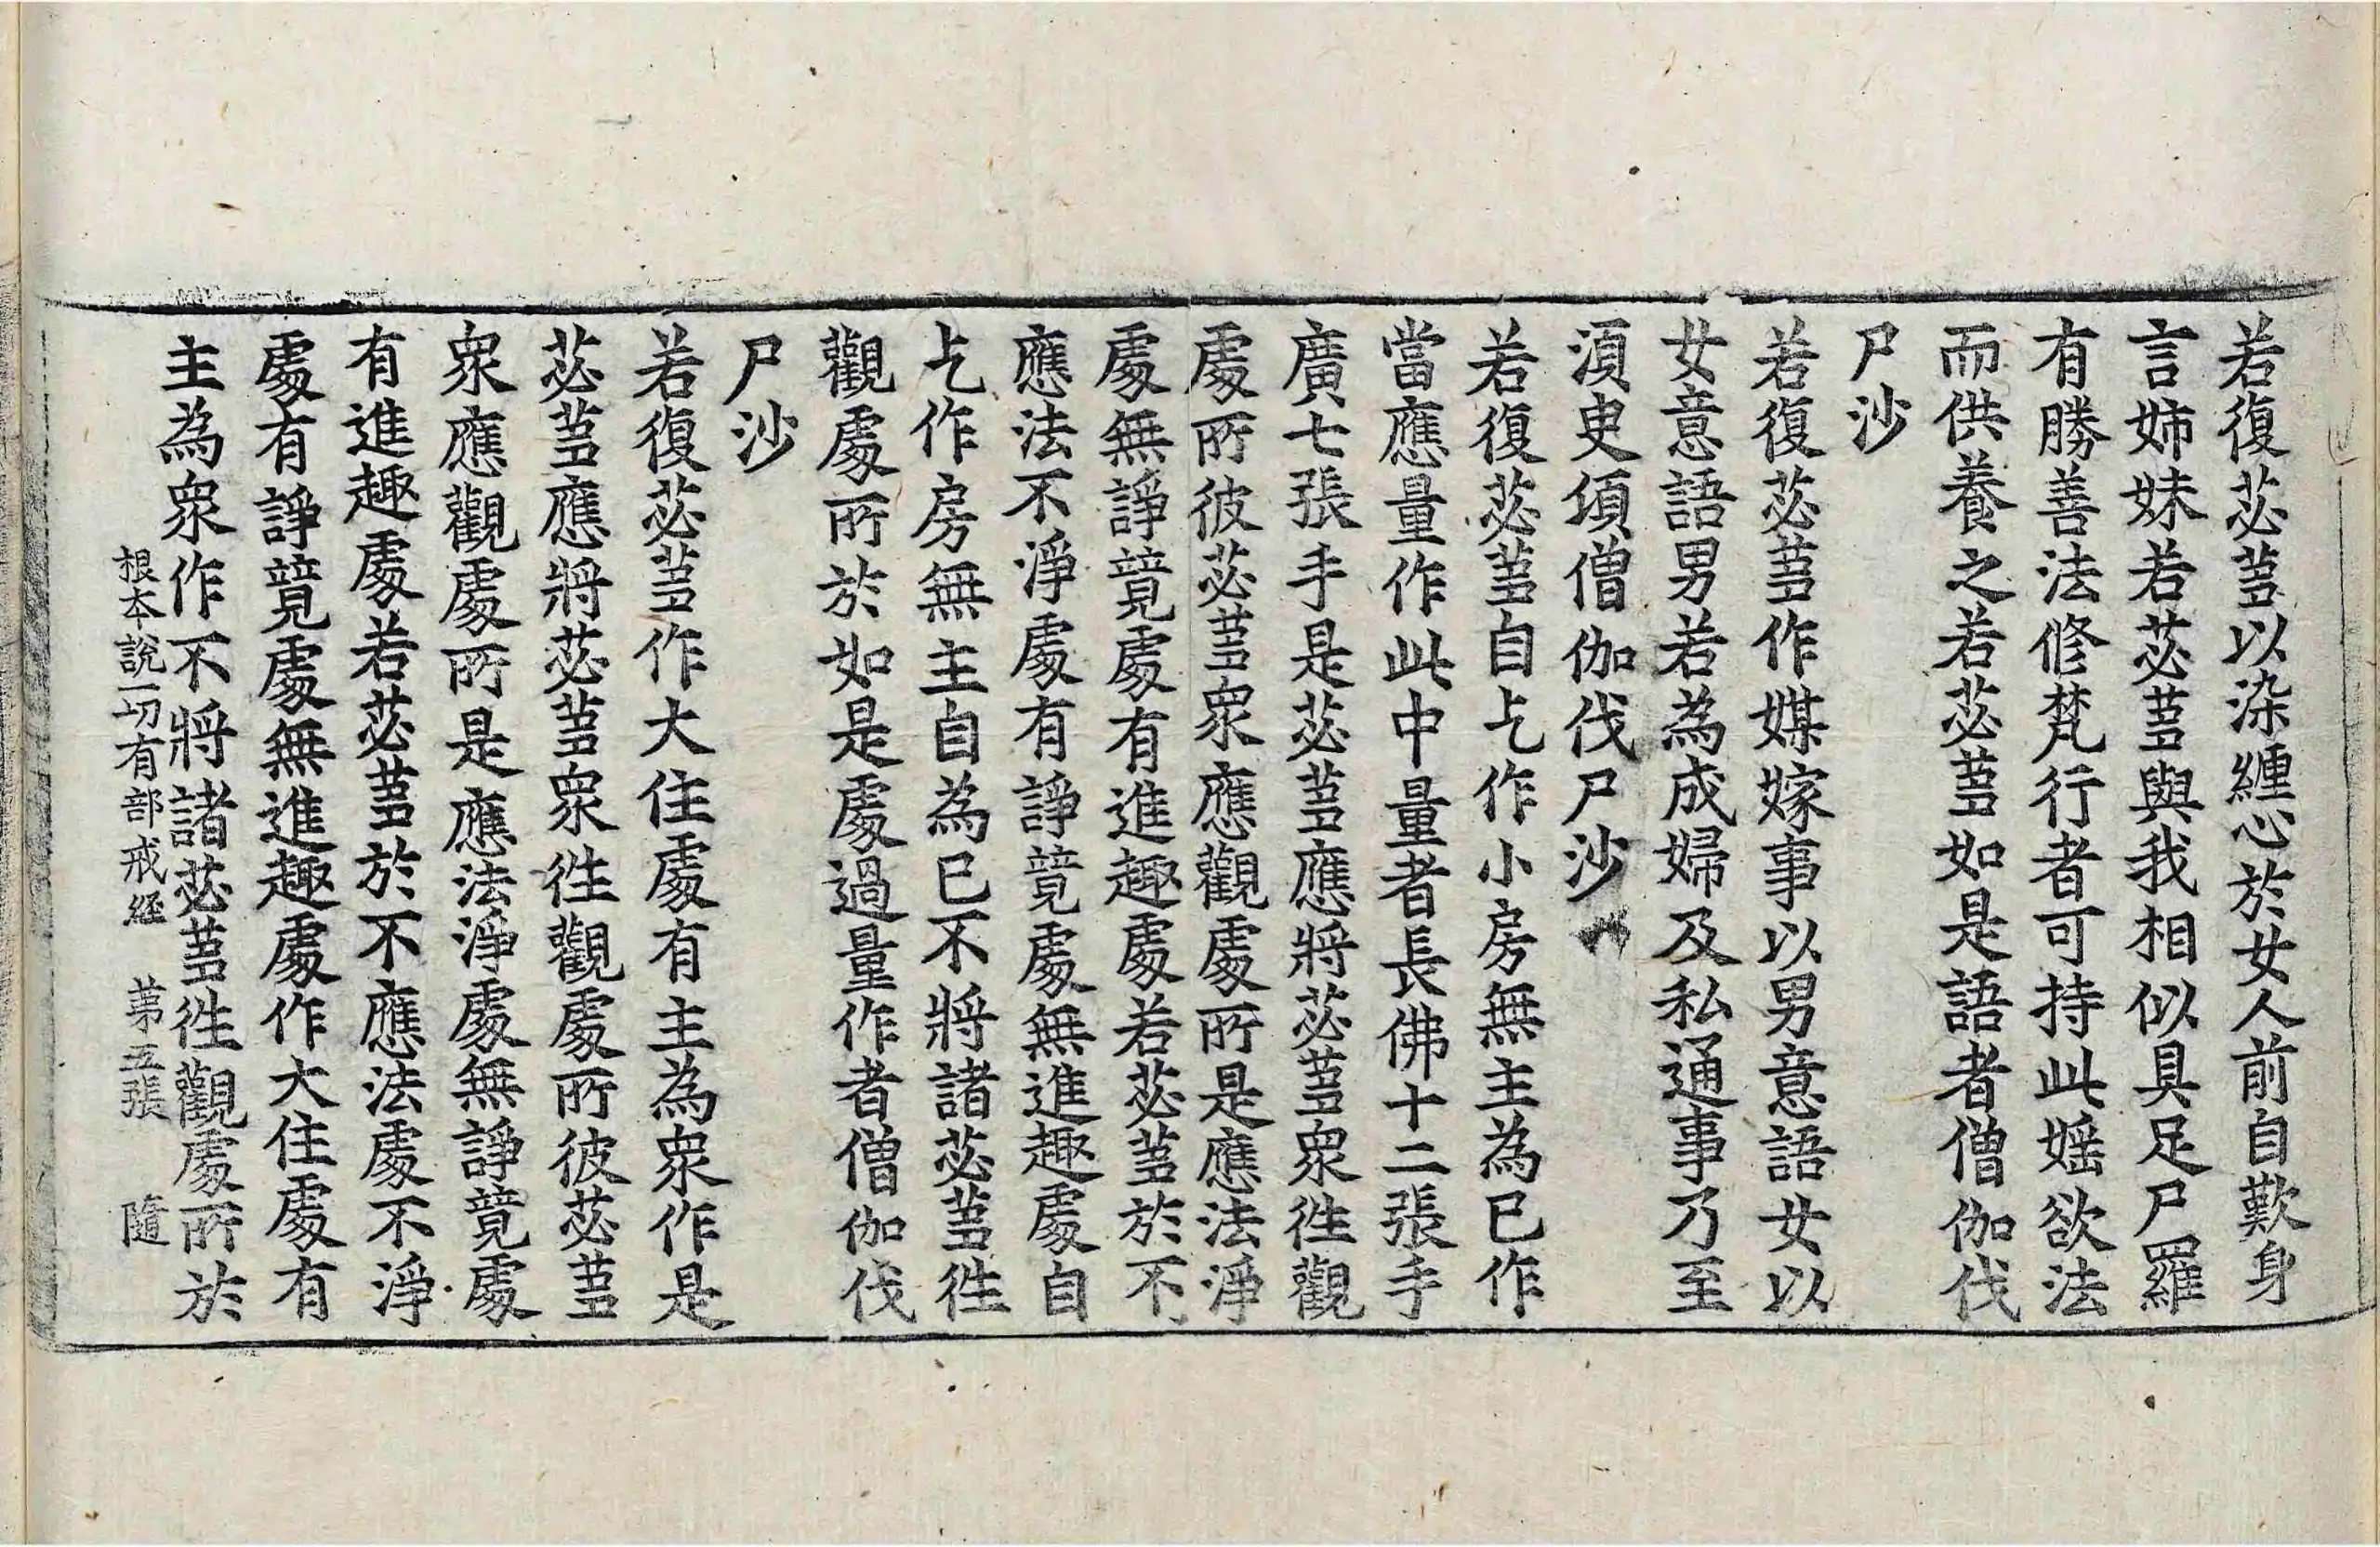 若復苾蒭以染纏心於女人前自歎身
言姉妹若苾蒭與我相似具足尸羅
有勝善法修梵行者可持此婬欲法
而供養之若苾蒭如是語者僧伽伐
尸沙
若復苾蒭作媒嫁事以男意語女以
女意語男若為成婦及私通事乃至
湏臾頃僧伽伐尸沙
若復苾蒭自乞作小房無主為己作
當應量作此中量者長佛十二張手
廣七張手是苾蒭應將苾蒭衆徃觀
處所彼苾蒭衆應觀處所是應法淨
處無諍競處有進趣處若苾蒭於不
應法不淨處有諍競處無進趣處自
乞作房無主自為己不將諸苾蒭徃
觀處所於如是處過量作者僧伽伐
尸沙
若復苾蒭作大住處有主為衆作是
苾蒭應將苾蒭衆徃觀處所彼苾蒭
衆應觀處所是應法淨處無諍競處
有進趣處若苾蒭於不應法處不淨
處有諍競處無進趣處作大住處有
主為衆作不將諸苾蒭徃觀處所於
根本說一切有部戒経 第五張 隨